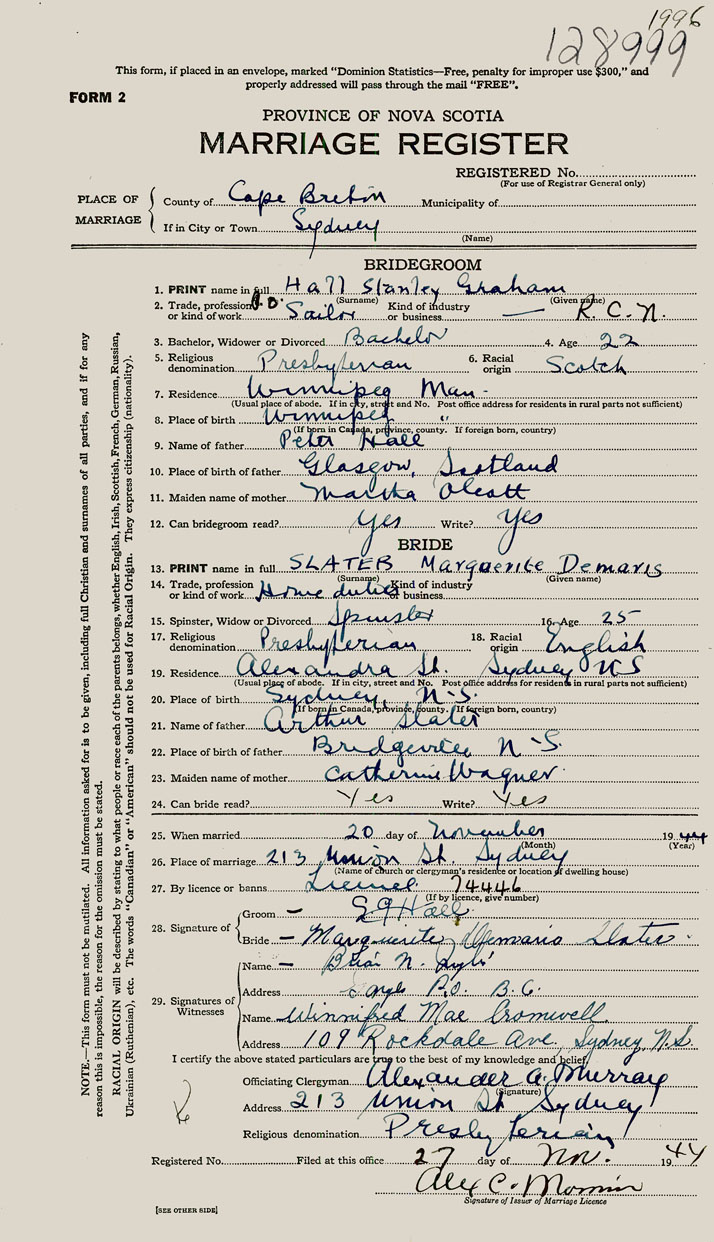 1996
128999
This form, if placed in an envelope, marked "Dominion Statistics—Free, penalty for improper use $300," and
properly addressed will pass through the mail "FREE".
FORM 2
PROVINCE OF NOVA SCOTIA
MARRIAGE REGISTER
REGISTERED No.
(For use of Registrar General only)
PLACE OF MARRIAGE
County of Cape Breton Municipality of
If in City or Town Sydney
(Name)
BRIDEGROOM
1. PRINT name in full Hall Stanley Graham
(Surname) (Given name)
2. Trade, profession or kind of work Sailor Kind of industry or business — R.C.N.
3. Bachelor, Widower or Divorced Bachelor 4. Age 22
5. Religious denomination Presbyterian 6. Racial origin Scotch
7. Residence Winnipeg Man -
(Usual place of abode. If in city, street and No. Post office address for residents in rural parts not sufficient)
8. Place of birth Winnipeg "
(If born in Canada, province, county. If foreign born, country)
9. Name of father Peter Hall
10. Place of birth of father Glasgow, Scotland
11. Maiden name of mother Martha Olcott
12. Can bridegroom read? Yes Write? Yes
BRIDE
13. PRINT name in full SLATER Marguerite Demaris
(Surname) (Given name)
14. Trade, profession or kind of work Home duties Kind of industry or business
15. Spinster, Widow or Divorced Spinster 16. Age 25
17. Religious denomination Presbyterian 18. Racial origin English
19. Residence Alexandra St. Sydney NS
(Usual place of abode. If in city, street and No. Post office address for residents in rural parts not sufficient)
20. Place of birth Sydney, N-S.
(If born in Canada, province, county. If foreign born, country)
21. Name of father Arthur Slater
22. Place of birth of father N-S.
23. Maiden name of mother Catherine Wagner
24. Can bride read? Yes Write? Yes
25. When married 20 day of November 1944
(Month) (Year)
26. Place of marriage 213 Union St. Sydney
(Name of church or clergyman's residence or location of dwelling house)
27. By licence or banns License 74446
(If by licence, give number)
28. Signature of
Groom — S G Hall
Bride — Marguerite Demaris Slater
29. Signatures of Witnesses
Name — Brian N.
Address P.O. B.C.
Name Winnifred Mae Cromwell
Address 109 Rockdale Ave, Sydney, N.S.
I certify the above stated particulars are true to the best of my knowledge and belief,
Officiating Clergyman Alexander A. Murray
(Signature)
Address 213 Union St Sydney
Religious denomination Presbyterian
Registered No. Filed at this office 27 day of Nov. 1944
Alex C.
Signature of Issuer of Marriage Licence
[SEE OTHER SIDE]
NOTE.—This form must not be mutilated. All information asked for is to be given, including full Christian and surnames of all parties, and if for any
reason this is impossible, the reason for the omission must be stated.
RACIAL ORIGIN will be described by stating to what people or race each of the parents belongs, whether English, Irish, Scottish, French, German, Russian,
Ukrainian (Ruthenian), etc. The words "Canadian" or "American" should not be used for Racial Origin. They express citizenship (nationality).